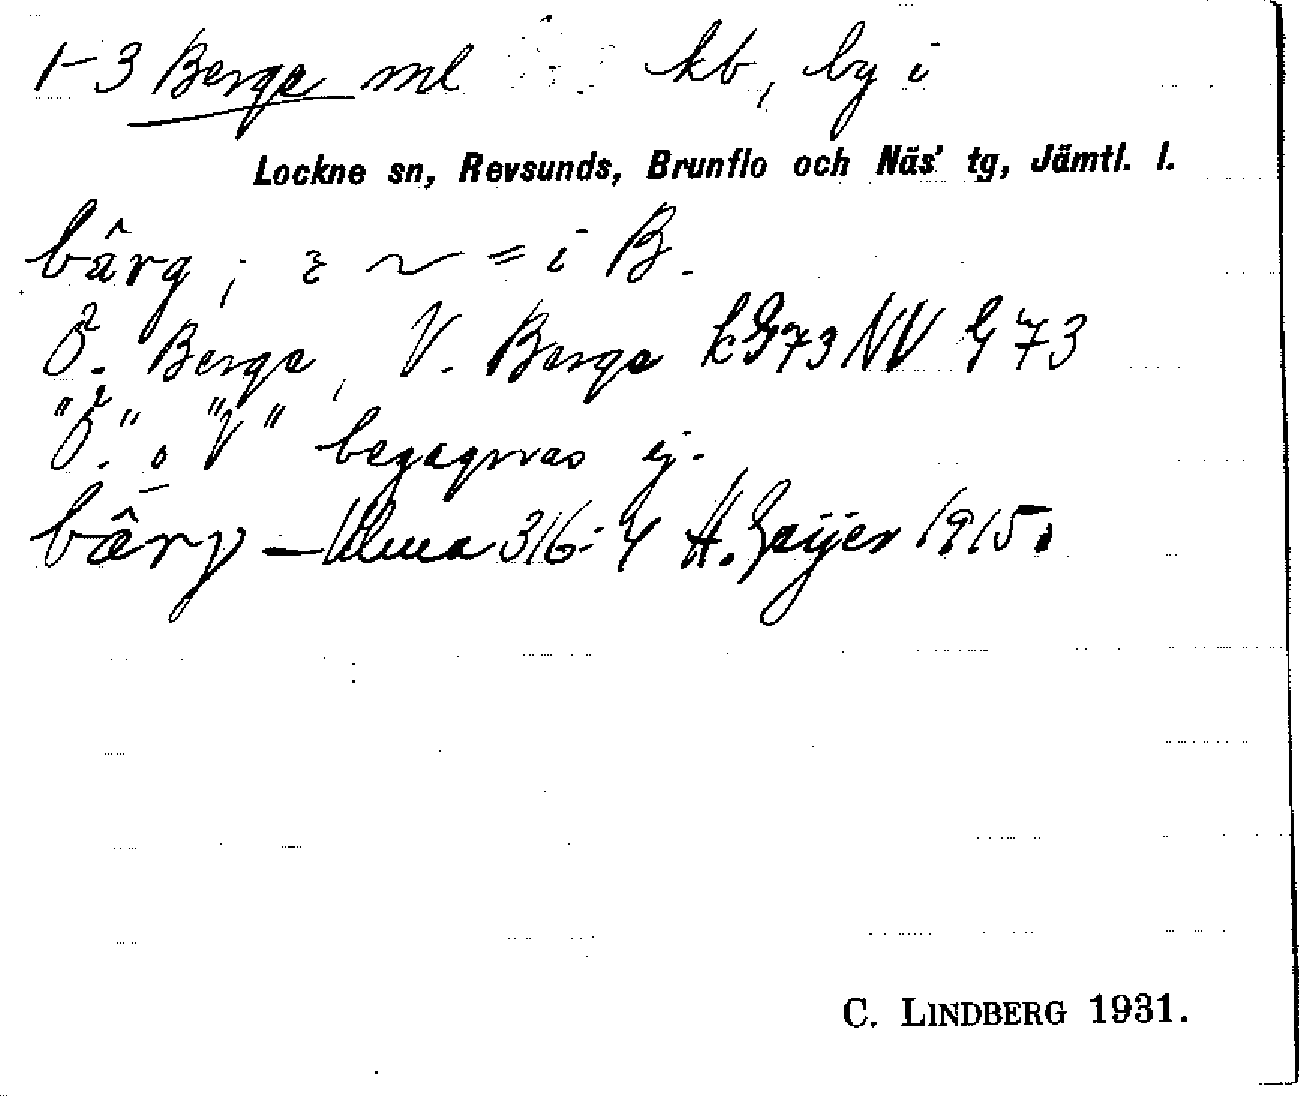 1-3 Berge ml kb, by i
Lockne sn, Revsunds, Brunflo och Näs' tg, Jämtl. l.
bârg, ; ~ = i B.
Ö. Berge, V. Berge k G73 NV G 73
"Ö." o "V" begagnas ej.
bârg – Ulma 316:4 H. Geijer 1915.
C. LINDBERG 1931.